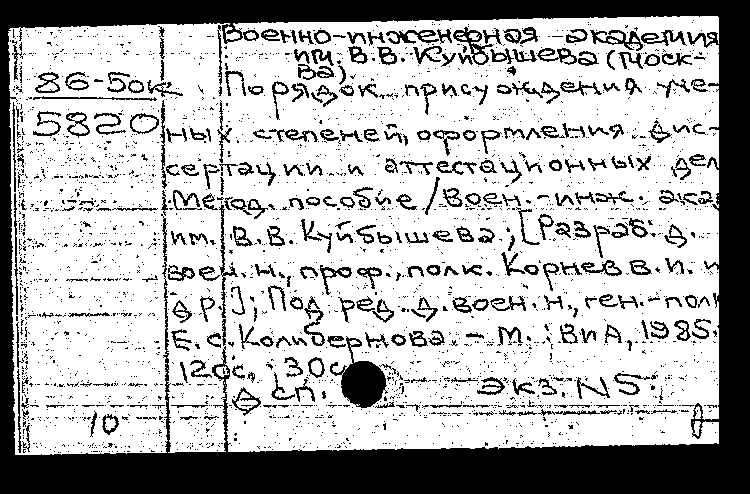 Военно-инженерная академия
им. В.В. Куйбышева (Моск-
ва).
86-5ок
Порядок присуждения уче-
5820
ных степеней, оформления дис-
сертации и аттестационных дел
Метод. пособие / Воен.-инж. ака
им. В.В. Куйбышева; [Разраб: д.
воен. н., проф., полк. Корнев В.И. и
др.]; Под ред. д. воен. н., ген.-полк
Е.С. Колибернова. - М.: ВИА, 1985.
120с.; 30с
Дсп. экз. N5.
10